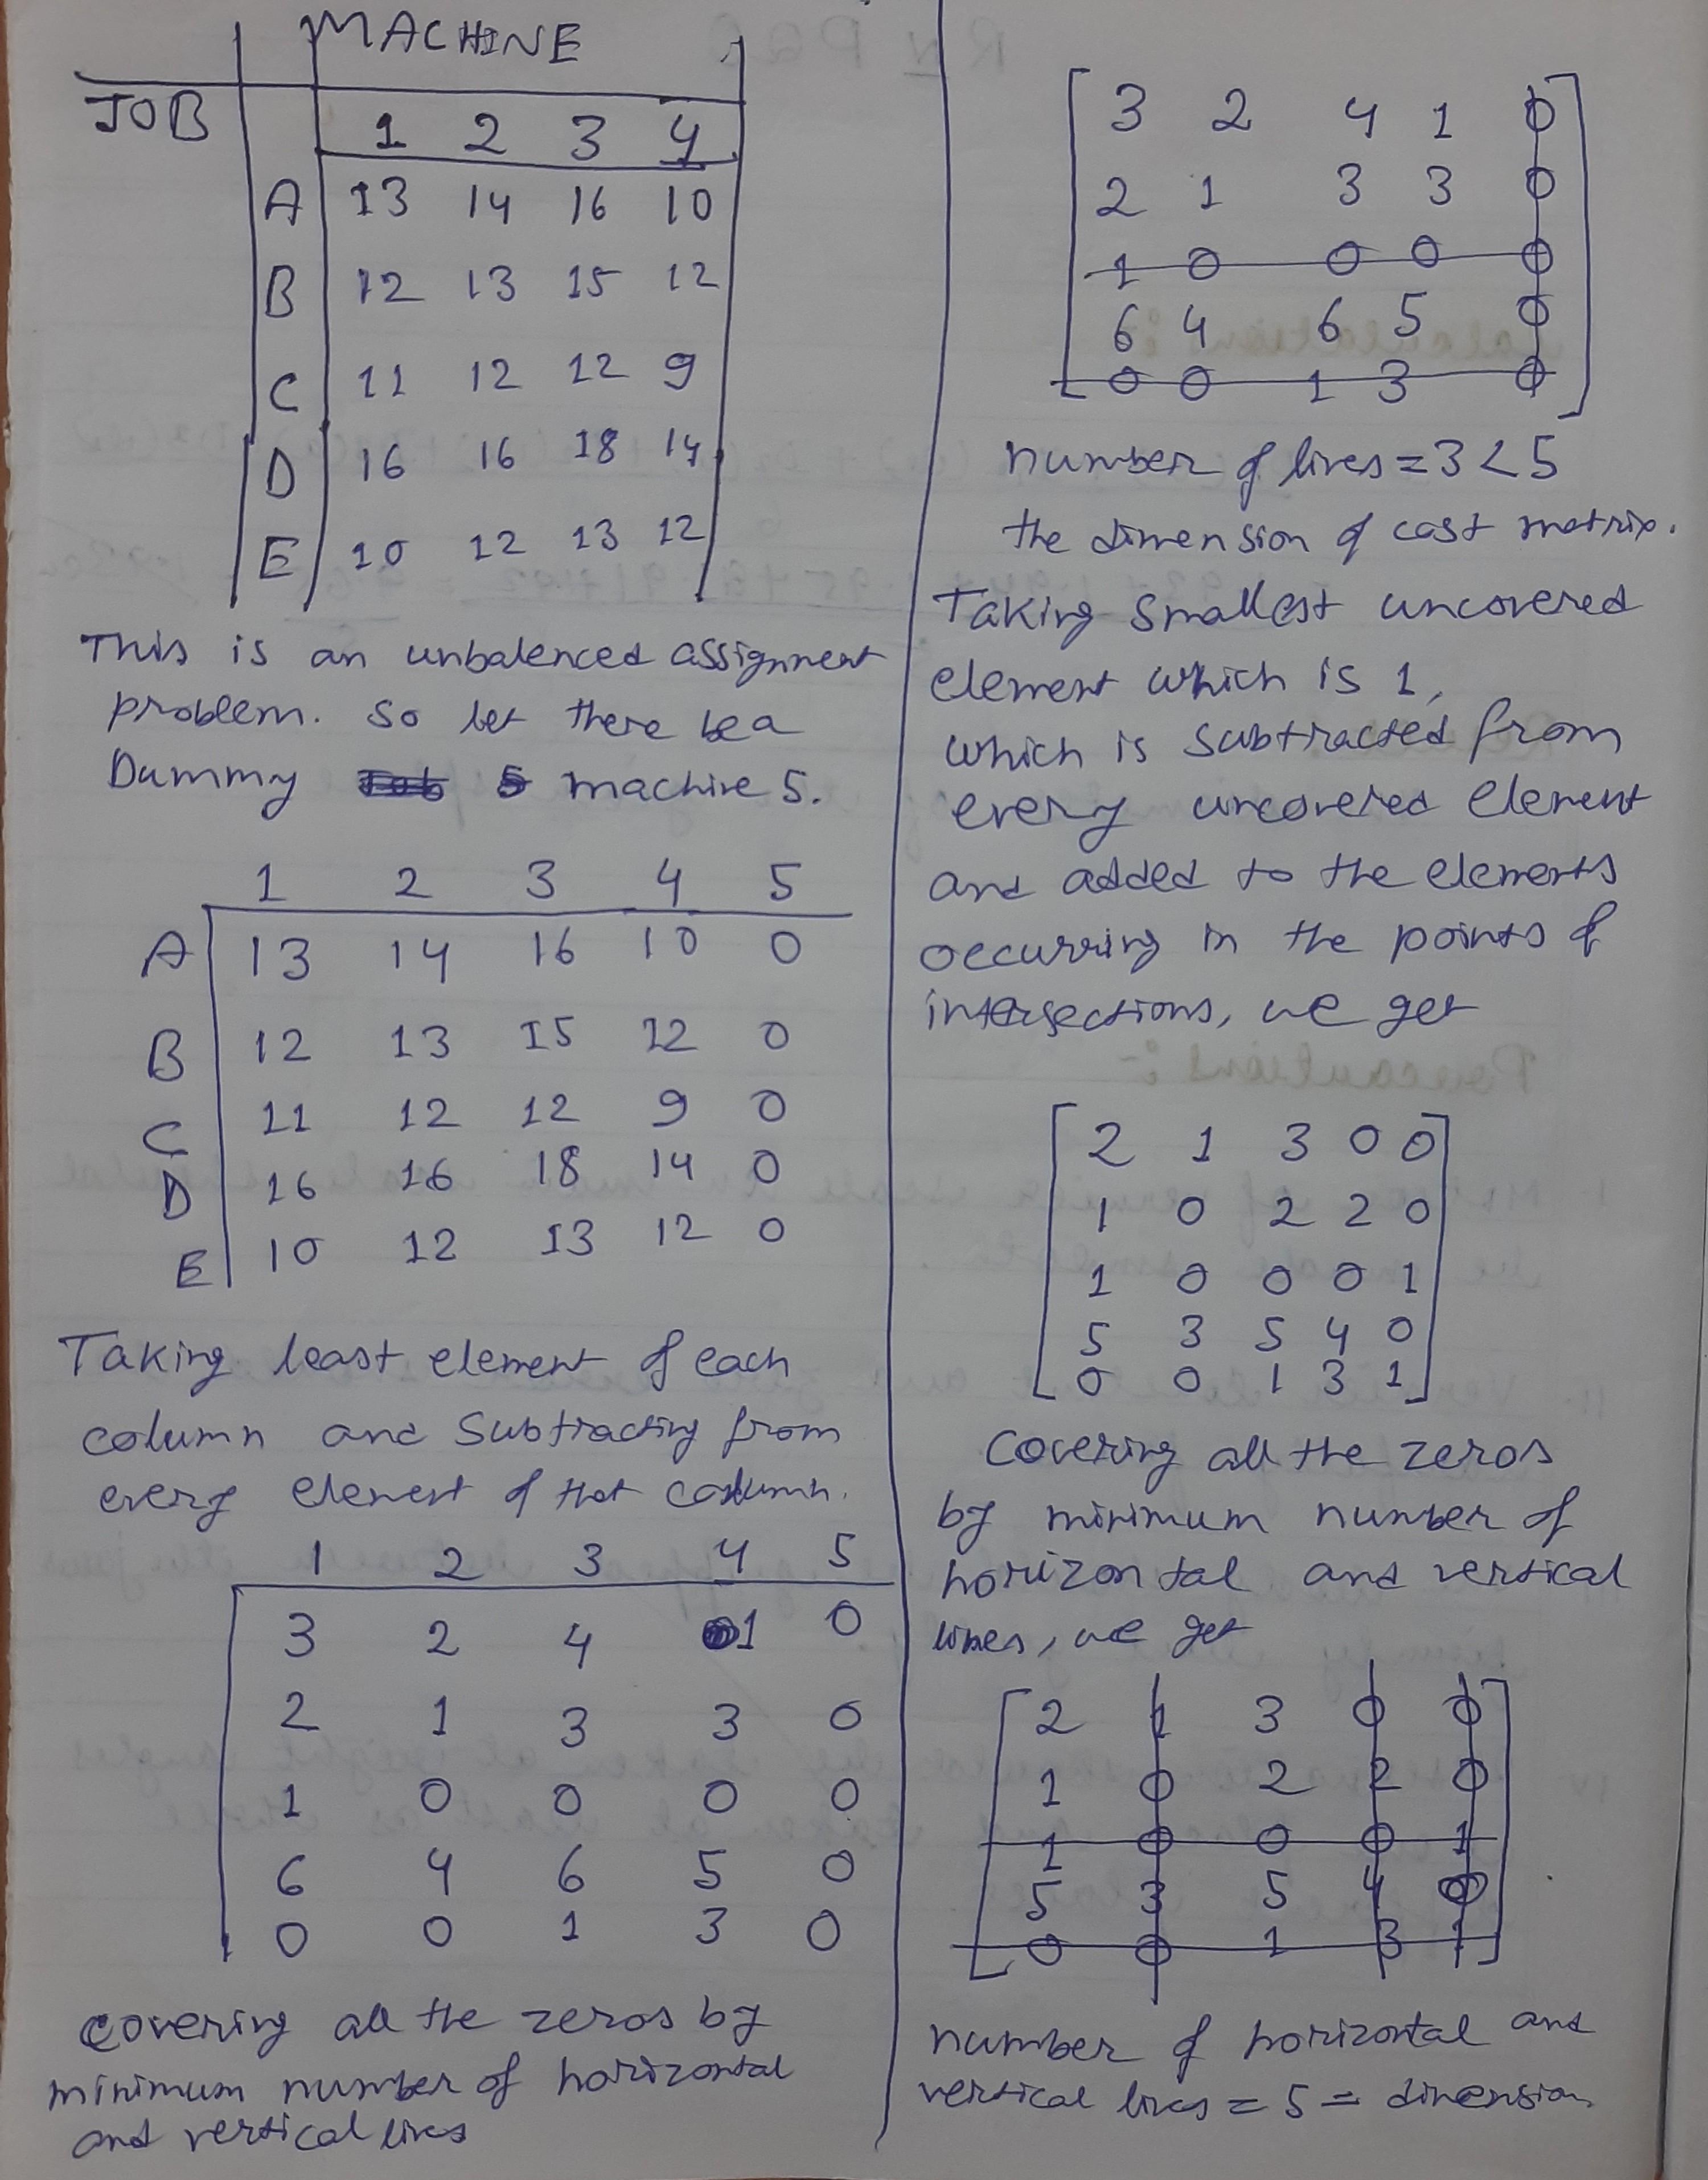 MACHINE
JOB
1 2 3 4
A 13 14 16 10
B 12 13 15 12
C 11 12 12 9
D 16 16 18 14
E 10 12 13 12
This is an unbalenced assignment
problem. So let there be a
Dummy machine 5.
1 2 3 4 5
A 13 14 16 10 0
B 12 13 15 12 0
C 11 12 12 9 0
D 16 16 18 14 0
E 10 12 13 12 0
Taking least element of each
column and Subtracting from
every element of that column.
1 2 3 4 5
3 2 4 1 0
2 1 3 3 0
1 0 0 0 0
6 4 6 5 0
0 0 1 3 0
Covering all the zeros by
minimum number of horizontal
and vertical lines
3 2 4 1 0
2 1 3 3 0
1 0 0 0 0
6 4 6 5 0
0 0 1 3 0
number of lines = 3 < 5
the dimension of cost matrix.
Taking Smallest uncovered
element which is 1,
which is subtracted from
every uncovered element
and added to the elements
occurring in the points of
intersections, we get
2 1 3 0 0
1 0 2 2 0
1 0 0 0 1
5 3 5 4 0
0 0 1 3 1
Covering all the zeros
by minimum number of
horizontal and vertical
lines, we get
2 1 3 0 0
1 0 2 2 0
1 0 0 0 1
5 3 5 4 0
0 0 1 3 1
number of horizontal and
vertical lines = 5 = dimension